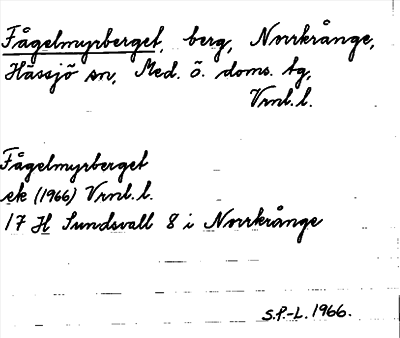 Fågelmyrberget, berg, Norrkrånge,
Hässjö sn, Med. ö. doms. tg,
Vrnl.l.
Fågelmyrberget
ek (1966) Vrnl.l.
17 H Sundsvall 8 i Norrkrånge
S.P.-L. 1966.